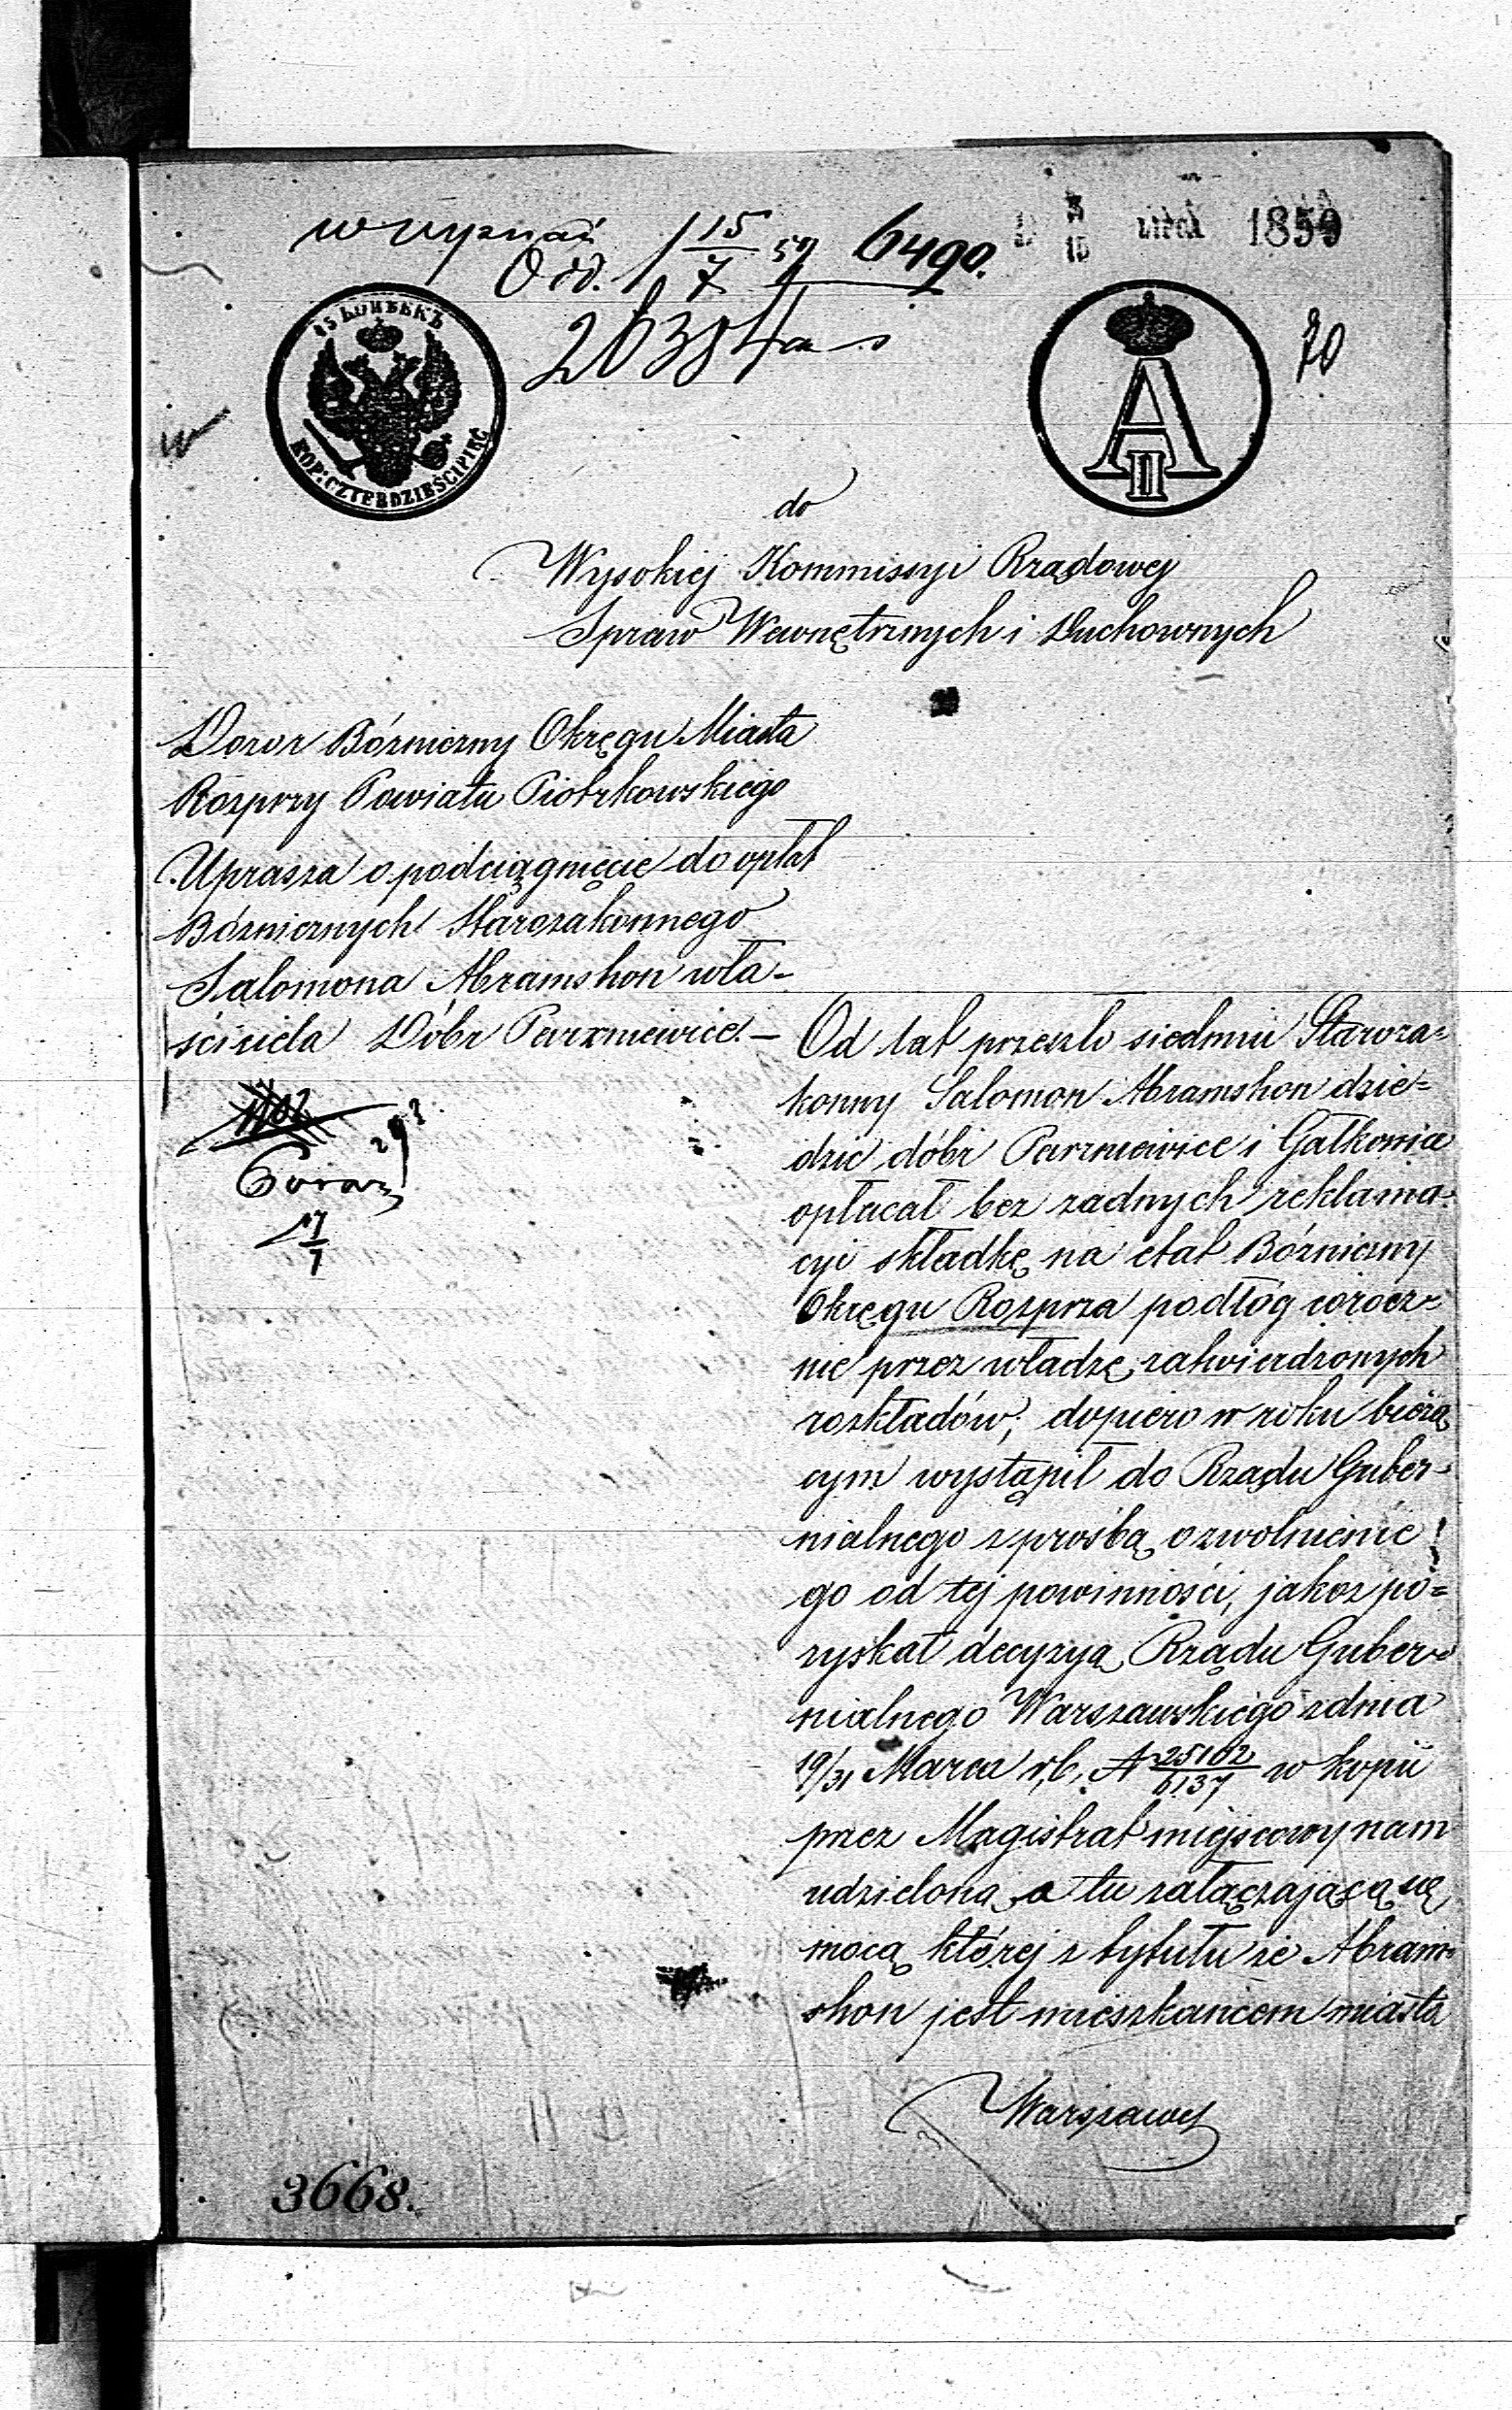 Odd. 1 15/7 59 6490.
3/15 1859
26384
70
45 КОПѢЕКЪ
KOP: CZTERDZIEŚCI PIĘĆ
A II
do
Wysokiej Kommissyi Rządowej
Spraw Wewnętrznych i Duchownych
Dozor Bóżniczny Okręgu Miasta
Rozprzy Powiatu Piotrkowskiego
Uprasza o podciągnięcie do opłat
Bóżnicznych Starozakonnego
Salomona Abramshon wła-
ściciela Dóbr Parzniewice. —
Od lat przeszło siedmiu Staroza=
konny Salomon Abramshon dzie=
dzic dóbr Parzniewice i Gałkowice
opłacał bez żadnych reklama-
cyi składkę na etat Bóżniczny
Okręgu Rozprza podłóg corocz=
nie przez władzę zatwierdzonych
rozkładów; dopiero w roku bieżą
cym wystąpił do Rządu Guber-
nialnego z prośbą o zwolnienie
go od tej powinności, jakoż po=
zyskał decyzyą Rządu Guber-
nialnego Warszawskiego z dnia
19/31 Marca r.b. N 25102/6137 w kopii
przez Magistrat miejscowy nam
udzieloną a tu załączającą się
mocą której z tytułu że Abram-
shon jest mieszkańcem miasta
Warszawy
17/7
3668.